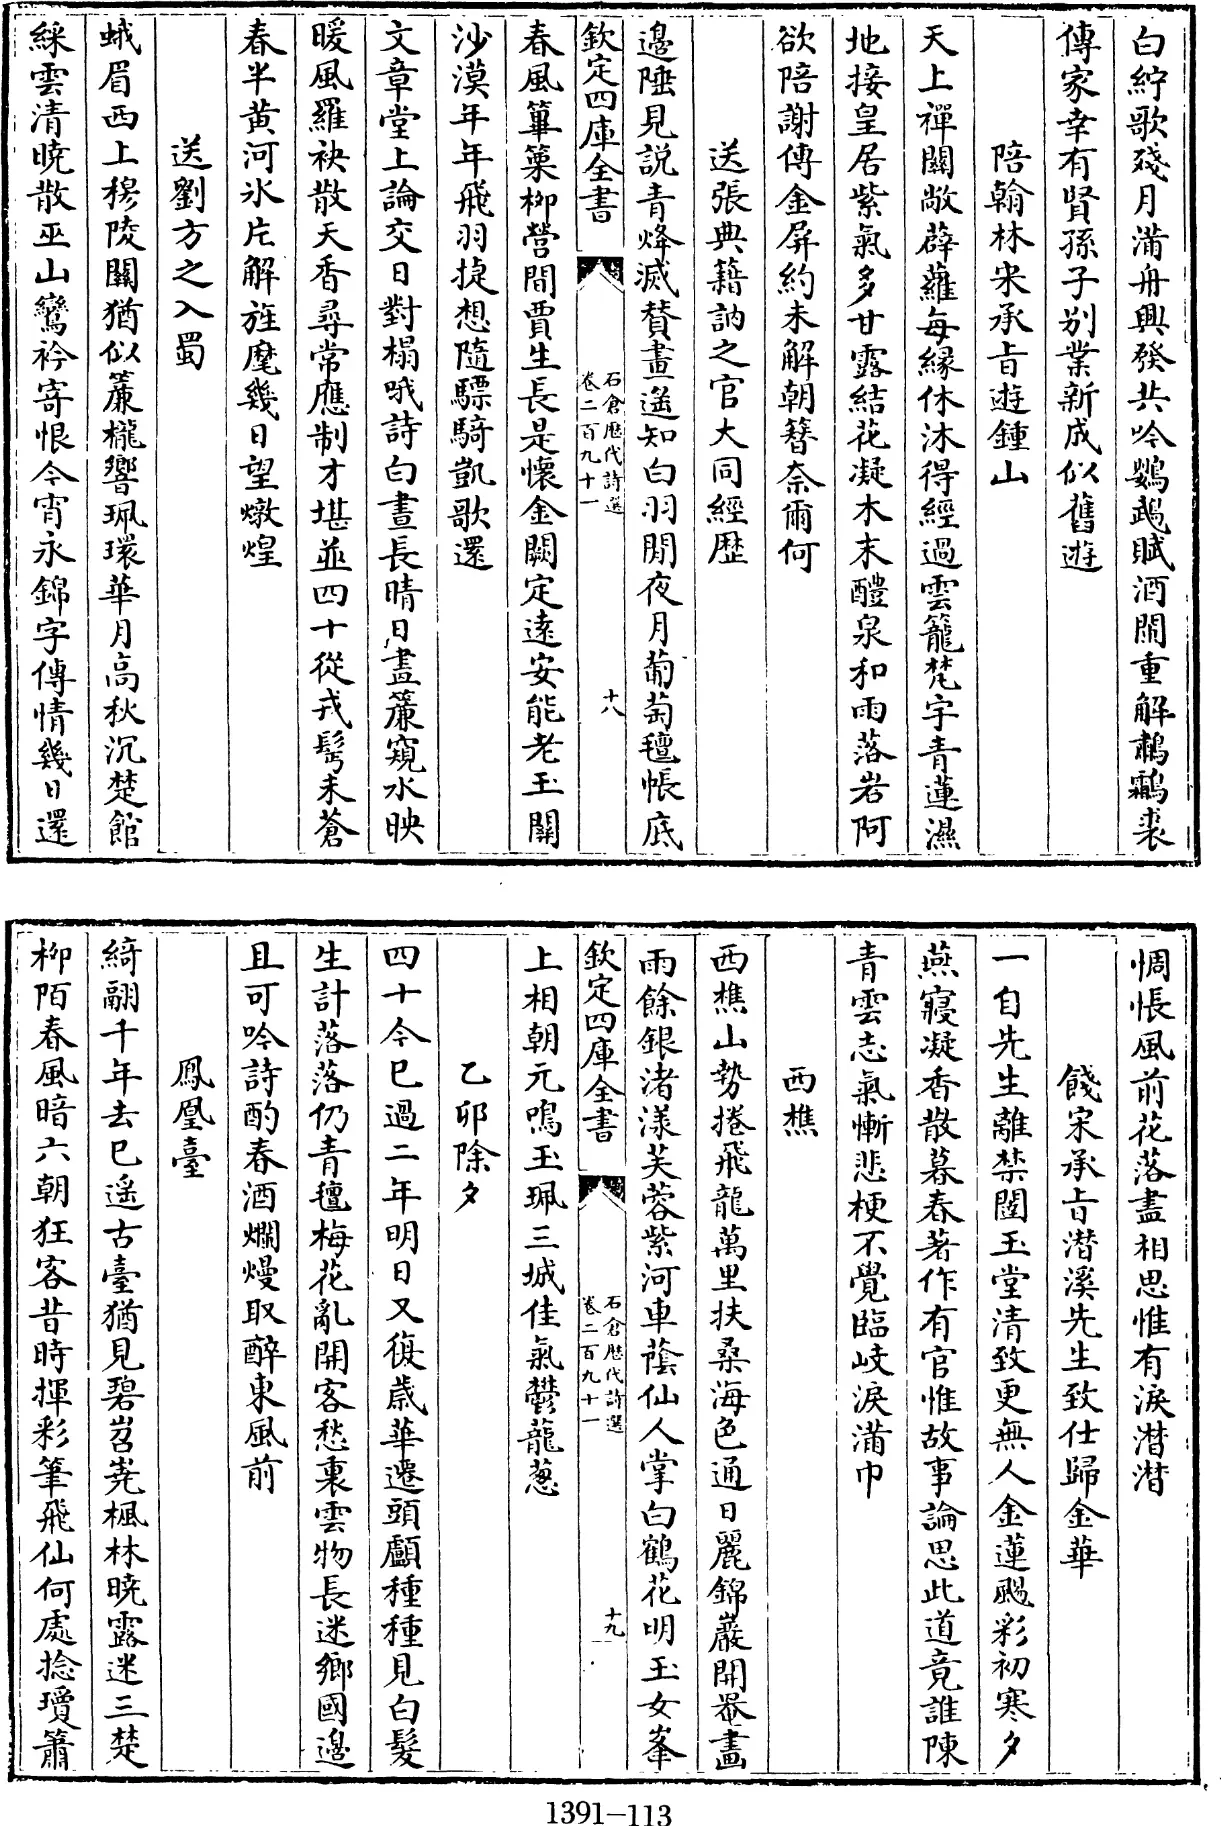 白紵歌殘月滿舟興發共吟鸚鵡賦酒闌重解鷫鸘裘
傳家幸有賢孫子别業新成似舊遊
陪翰林宋承旨遊鍾山
天上禪關敞薜蘿每縁休沐得經過雲籠梵宇青蓮濕
地接皇居紫氣多甘露結花凝木末醴泉和雨落岩阿
欲陪謝傅金屏約未解朝簪奈爾何
送張典籍訥之官大同經歴
邊陲見説青烽滅賛畫遥知白羽閒夜月葡萄氊帳底
欽定四庫全書
石倉歴代詩選
卷二百九十一
十八
春風篳篥柳營間賈生長是懷金闕定遠安能老玉關
沙漠年年飛羽㨗想隨驃騎凱歌還
文章堂上論交日對榻哦詩白晝長晴日畫簾窺水映
暖風羅袂散天香尋常應制才堪並四十從戎髩未蒼
春半黄河氷片解旌麾幾日望燉煌
送劉方之入蜀
蛾眉西上穆陵關猶似簾櫳響珮環華月高秋沉楚館
綵雲清曉散巫山鸞衿寄恨今宵永錦字傳情幾日還
惆悵風前花落盡相思惟有淚潸潸
餞宋承旨潛溪先生致仕歸金華
一自先生離禁闥玉堂清致更無人金蓮颺彩初寒夕
燕寢凝香散暮春著作有官惟故事論思此道竟誰陳
青雲志氣慚悲梗不覺臨岐淚滿巾
西樵
西樵山勢捲飛龍萬里扶桑海色通日麗錦巖開罨畫
雨餘銀渚漾芙蓉紫河車蔭仙人掌白鶴花明玉女峯
欽定四庫全書
石倉歴代詩選
卷二百九十一
十九
上相朝元鳴玉珮三城佳氣鬱龍葱
乙卯除夕
四十今已過二年明日又復歳華遷頭顱種種見白髮
生計落落仍青氊梅花亂開客愁裏雲物長迷鄉國邊
且可吟詩酌春酒爛熳取醉東風前
鳳凰臺
綺翮千年去已遥古臺猶見碧岧嶤楓林曉露迷三楚
柳陌春風暗六朝狂客昔時揮彩筆飛仙何處捻瓊簫
1391—113